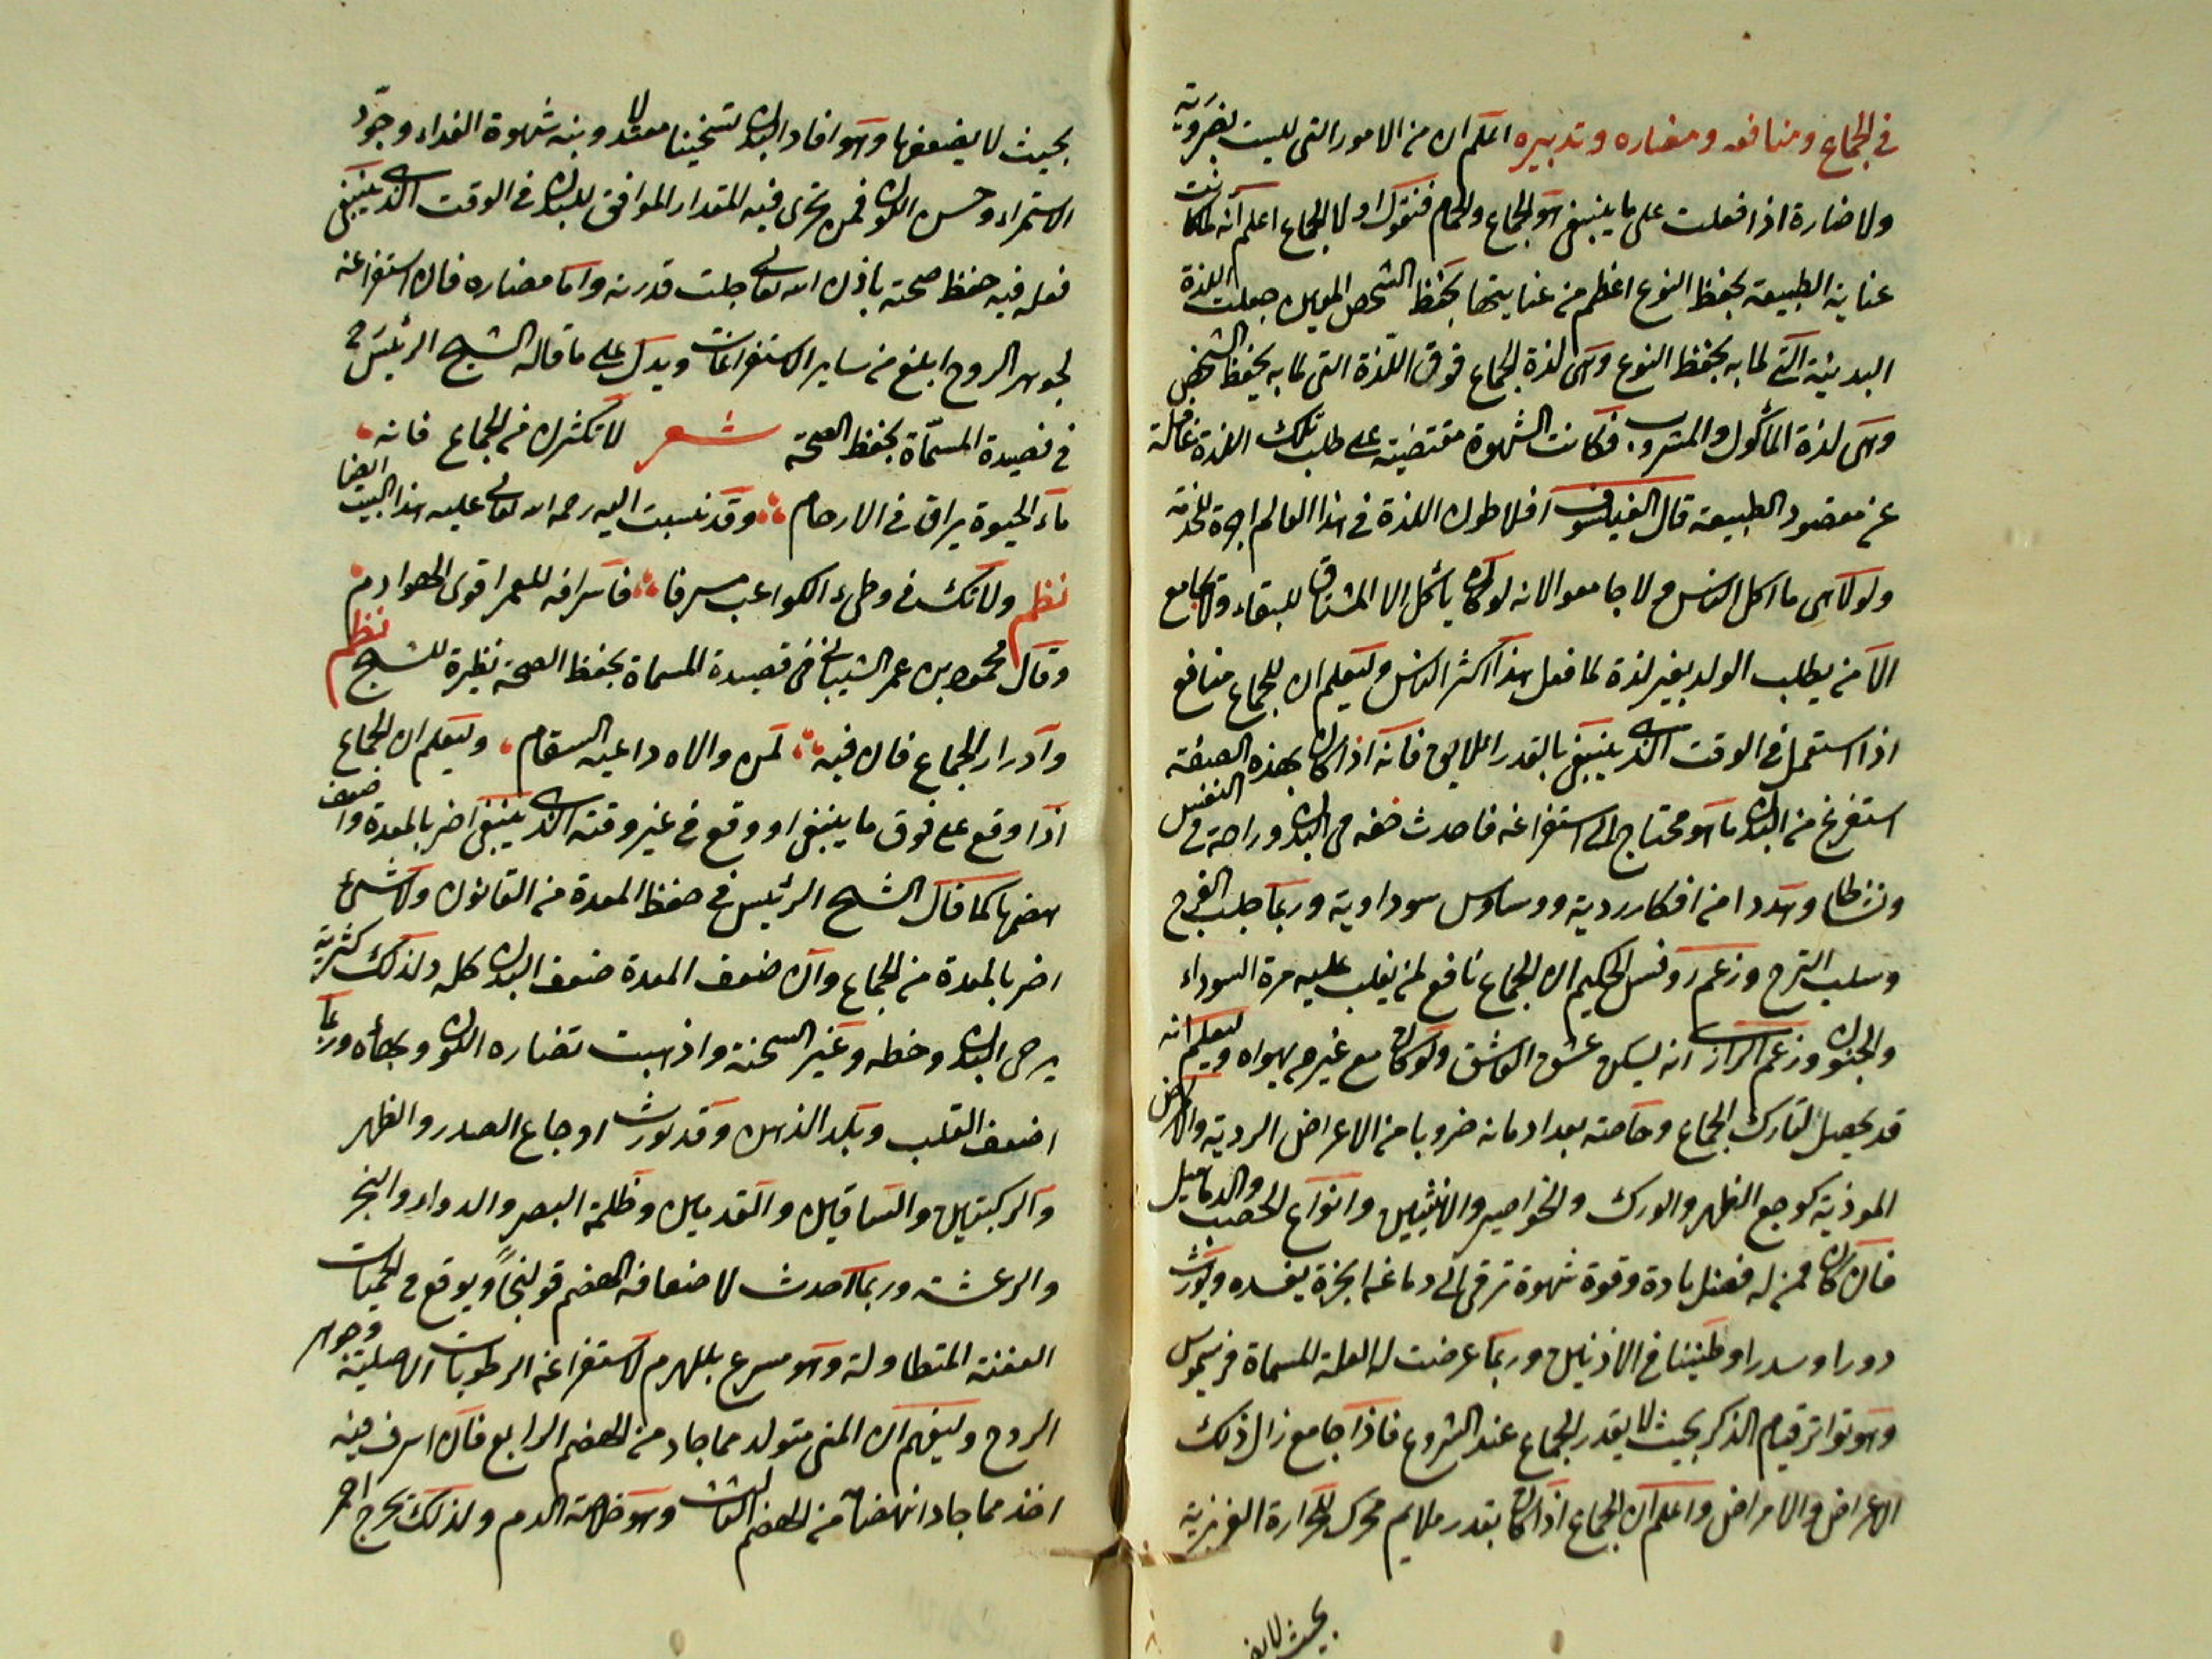 في الجماع ومنافعه ومضاره وتدبيره اعلم ان من الامور التى ليست بضرورية
ولا ضارة اذا فعلت على ما ينبغى هو الجماع والحمام فنقول اولا الجماع اعلم انه لما كانت
عناية الطبيعة بحفظ النوع اعظم من عنايتها بحفظ الشخص المعين جعلت اللذة
البدنية التى لما به يحفظ النوع وهى لذة الجماع فوق اللذة التى لما به يحفظ الشخص
وهى لذة المأكول والمشروب فكانت الشهوة مقتضية على طلب تلك اللذة غافلة
عن مقصود الطبيعة قال الفيلسوف افلاطون اللذة فى هذا العالم اجرة للخدمة
ولولا هى ما اكل الناس ولا جامعوا لانه لو كان يأكل الا المشتاق للبقاء ولا يجامع
الا من يطلب الولد بغير لذة لما فعل هذا اكثر الناس وليعلم ان للجماع منافع
اذا استعمل فى الوقت الذى ينبغى بالقدر اللايق فانه اذا كان بهذه الصفة
استفرغ من البدن ما هو محتاج الى استفراغه فاحدث خفة فى البدن وراحة فى النفس
ونشاطا وهددا من افكار ردية ووساوس سوداوية وربما جلب الفرح
وسلب الترح وزعم روفس الحكيم ان الجماع نافع لمن يغلب عليه مرة السوداء
والجنون وزعم الرازى انه يسكن عشق العاشق ولو كان مع غير من يهواه وليعلم انه
قد يحصل لتارك الجماع وخاصته بعد ادمانه ضروبا من الاعراض الردية والامراض
الموذية كوجع الظهر والورك والخواصير والانثيين وانواع الحصب والدماميل
فان كان ممن له فضل مادة وقوة شهوة ترقى الى دماغه ابخرة يفسده ويورث
دورا وسدرا وطنينا فى الاذنين وربما عرضت له العلة المسماة فريسموس
وهو تواتر قيام الذكر بحيث لا يقدر الجماع عند الشروع فاذا جامع زال ذلك
الاعراض والامراض واعلم ان الجماع اذا كان بقدر ملايم محرك للحرارة الغريزية
بحيث لا يضعفها
بحيث لا يضعفها وهو افاد البدن تسخينا معتدلا وينبه شهوة الغذاء وجوّد
الاستمراء وحسن اللون فمن تحرى فيه المقدار الموافق للبدن فى الوقت الذى ينبغى
فعله فيه حفظ صحته باذن الله تعالى جلت قدرته واما مضاره فان استفراغه
لجوهر الروح ابلغ من ساير الاستفراغات ويدل على ما قاله الشيخ الرئيس فى
فى قصيدة المسمّاة بحفظ الصحة شعر لا تكثرن من الجماع فانه
ماء الحيوة يراق فى الارحام وقد نسبت اليه رحمه الله تعالى عليه هذا البيت ايضا
نظم ولا تك فى وطىء الكواعب مسرفا فاسرافه للعمر اقوى الهوادم
وقال محمود بن عمر الشيبانى فى قصيدة المسماة بحفظ الصحة نظيرة للشيخ نظم
وادرار الجماع فان فيه لمن والاه داعية السقام وليعلم ان الجماع
اذا وقع على فوق ما ينبغى او وقع فى غير وقته الذى ينبغى اضر بالمعدة واضعف
هضمها كما قال الشيخ الرئيس فى حفظ المعدة من القانون ولا شىء
اضر بالمعدة من الجماع وان ضعف المعدة ضعف البدن كله ولذلك كثرته
يرخى البدن وخطه وغير السحنة واذهبت نضاره اللون وبهاه وربما
اضعف القلب وبلد الذهن وقد يورث اوجاع الصدر والظهر
والركبتين والساقين والقدمين وظلمة البصر والدوار والبخر
والرعشة وربما احدث لاضعافه الهضم قولنجاً ويوقع فى الحميات
العفنة المتطاولة وهو مسرع بالهرم لاستفراغه الرطوبات الاصلية وجوهر
الروح وليفهم ان المنى متولد مما جاد من الهضم الرابع فان اسرف فيه
اخذ مما جاد انهضامه من الهضم الثالث وهو خلاصة الدم ولذلك يخرج احمر